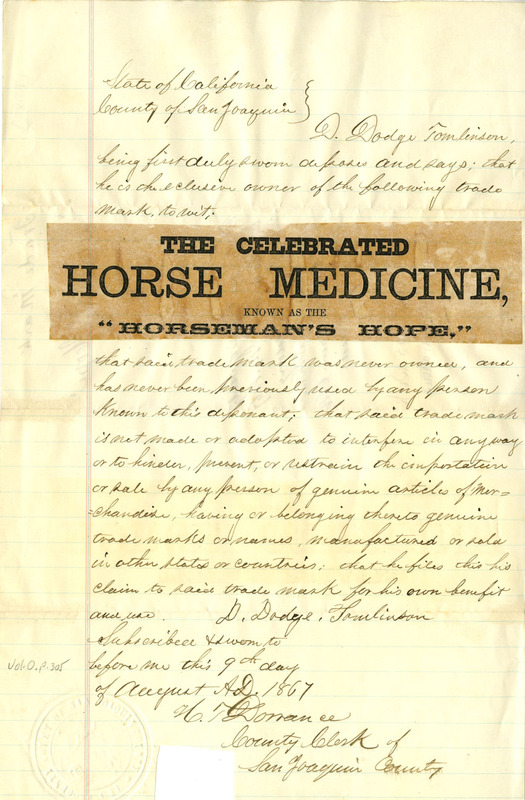 State of California
County of San Joaquin
D. Dodge Tomlinson,
being first duly sworn deposes and says; that
he is the exclusive owner of the following trade
mark, to wit;
THE CELEBRATED
HORSE MEDICINE,
KNOWN AS THE
"HORSEMAN'S HOPE,"
that said trade mark was never owned, and
has never been previously used by any person
known to this deponent; that said trade mark
is not made or adopted to interfere in any way
or to hinder, prevent, or restrain the importation
or sale by any person of genuine articles of Mer=
=chandise, having or belonging thereto genuine
trade marks or names, manufactured or sold
in other states or countries; that he files this his
claim to said trade mark for his own benefit
and use. D. Dodge. Tomlinson
Subscribed & sworn to
Vol. O. p. 305
before me this 9th day
of August A.D. 1867
H. T. Dorrance
County Clerk of
San Joaquin County